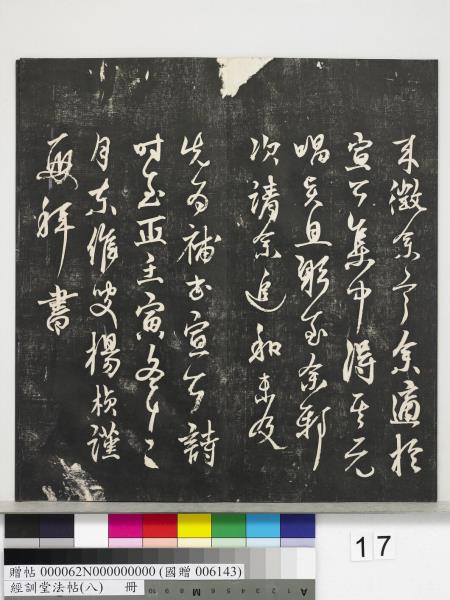 来徵余言余適於
宣公集中得其元
唱且躬至余邸
次請余追和未及
先為補書宣公詩
时至正壬寅冬十二
月東維叟楊楨謹
再拜書
17
贈帖 000062N000000000 (國贈 006143)
經訓堂法帖(八) 冊